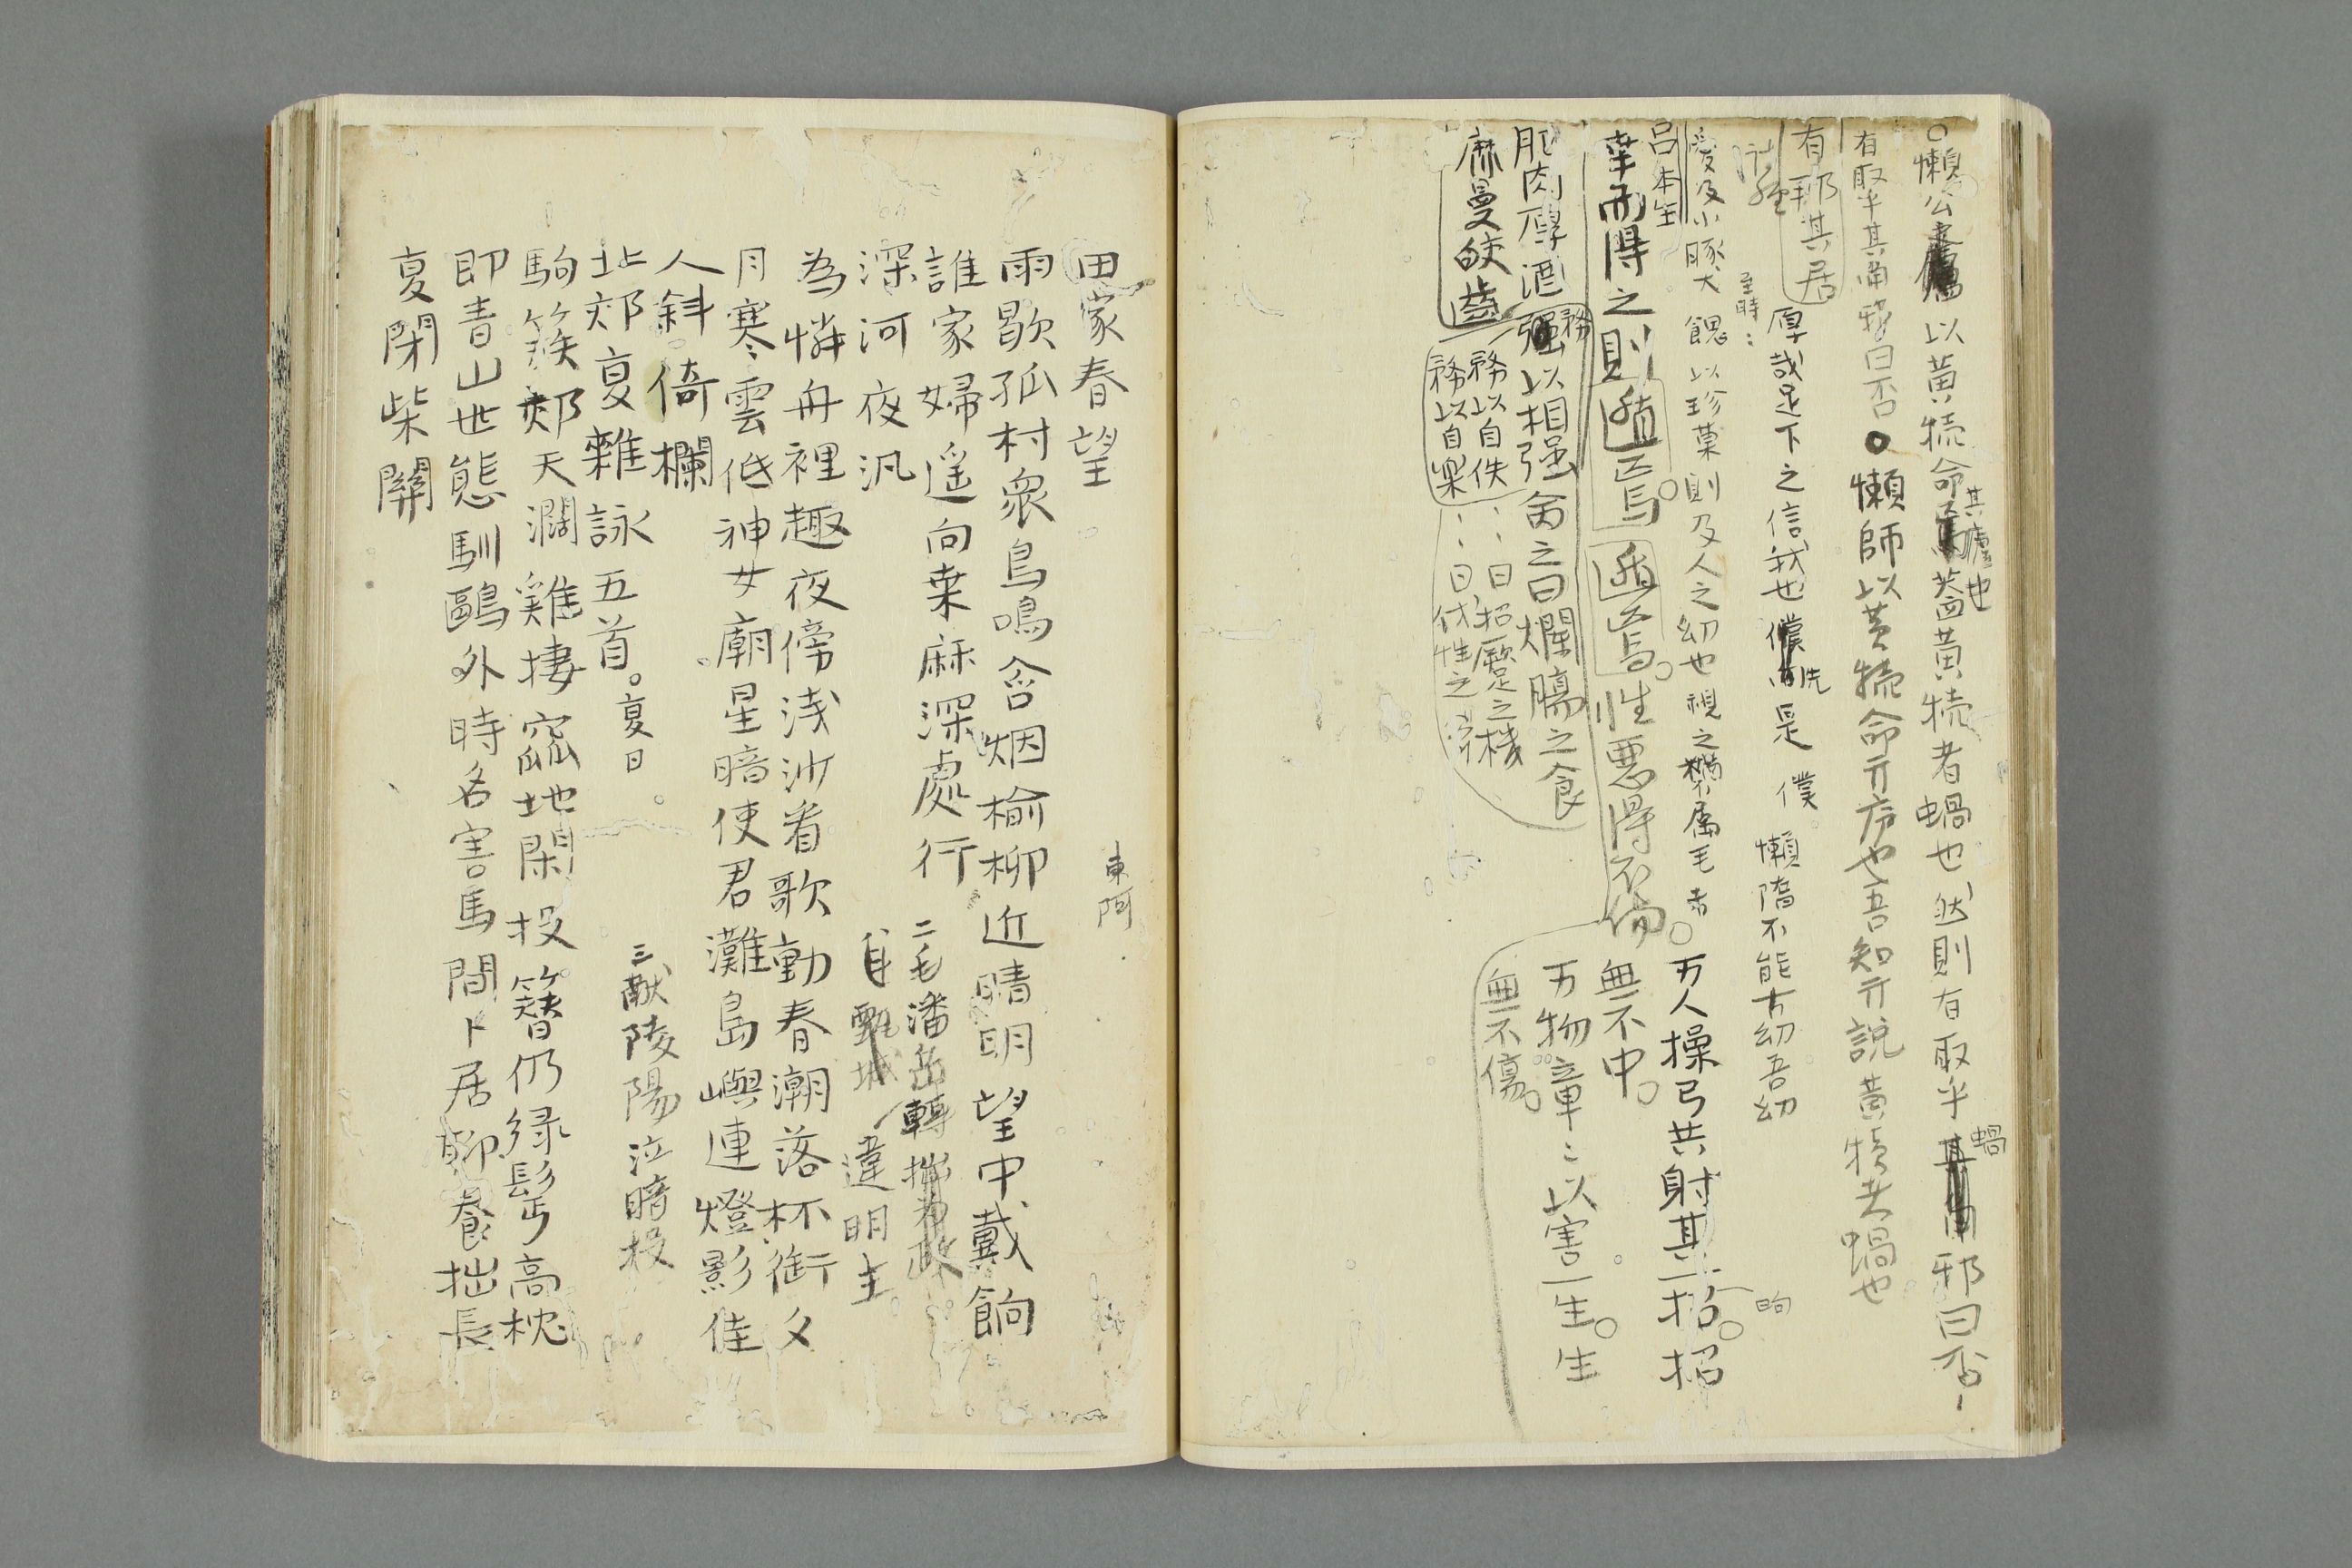 ○懶公 以黄犢命 蓋黄犢者蝸也然則有取乎 邪曰否
其廬也
蝸
有取乎其角 曰否○懶師以黄犢命亓序也吾知亓説黄犢者蝸也
有 其居
厚哉足下之信我也僕 是 僕 懶隋不能方幼吾幼
至時
愛及小豚犬餽以珍菓則及人之幼也視之 属毛者○万人操弓共射其一招○招
的
呂本生
幸而得之則 焉○遁焉○性悪得不傷 無不中○
肥肉厚酒務以相强命之曰爛腸之食 万物章〻以害一生○生
麻曼皓歯 務以自佚 曰招蹷之機 無不傷○
務以自樂 曰伐性之斧
田家春望
東阿
雨歇孤村衆鳥鳴含烟楡柳近晴明望中戴餉
誰家婦遥向桒麻深處行 二毛潘岳轉
深河夜汎 身 違明主
為憐舟裡趣夜傍浅沙看歌動春潮落杯銜夕
月寒雲低神女廟星暗使君灘島嶼連燈影佳
人斜倚欄
北郊夏雜詠五首○夏日 三献陵陽泣暗投
駒簇郊天濶雞棲窳地閑投簪仍緑髩高枕
即青山世態馴鷗外時名害馬間卜居聊養拙長
夏閉柴關